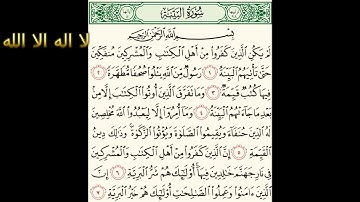 سُورَةُ الْبَيِّنَةِ
بِسْمِ اللَّهِ الرَّحْمَٰنِ الرَّحِيمِ
لا اله الا الله
لَمْ يَكُنِ الَّذِينَ كَفَرُوا مِنْ أَهْلِ الْكِتَابِ وَالْمُشْرِكِينَ مُنفَكِّينَ
حَتَّىٰ تَأْتِيَهُمُ الْبَيِّنَةُ ١ رَسُولٌ مِّنَ اللَّهِ يَتْلُو صُحُفًا مُّطَهَّرَةً ٢
فِيهَا كُتُبٌ قَيِّمَةٌ ٣ وَمَا تَفَرَّقَ الَّذِينَ أُوتُوا الْكِتَابَ إِلَّا مِن
بَعْدِ مَا جَاءَتْهُمُ الْبَيِّنَةُ ٤ وَمَا أُمِرُوا إِلَّا لِيَعْبُدُوا اللَّهَ مُخْلِصِينَ
لَهُ الدِّينَ حُنَفَاءَ وَيُقِيمُوا الصَّلَوٰةَ وَيُؤْتُوا الزَّكَوٰةَ وَذَٰلِكَ دِينُ
الْقَيِّمَةِ ٥ إِنَّ الَّذِينَ كَفَرُوا مِنْ أَهْلِ الْكِتَابِ وَالْمُشْرِكِينَ
فِي نَارِ جَهَنَّمَ خَالِدِينَ فِيهَا أُولَٰئِكَ هُمْ شَرُّ الْبَرِيَّةِ ٦ إِنَّ
الَّذِينَ آمَنُوا وَعَمِلُوا الصَّالِحَاتِ أُولَٰئِكَ هُمْ خَيْرُ الْبَرِيَّةِ ٧